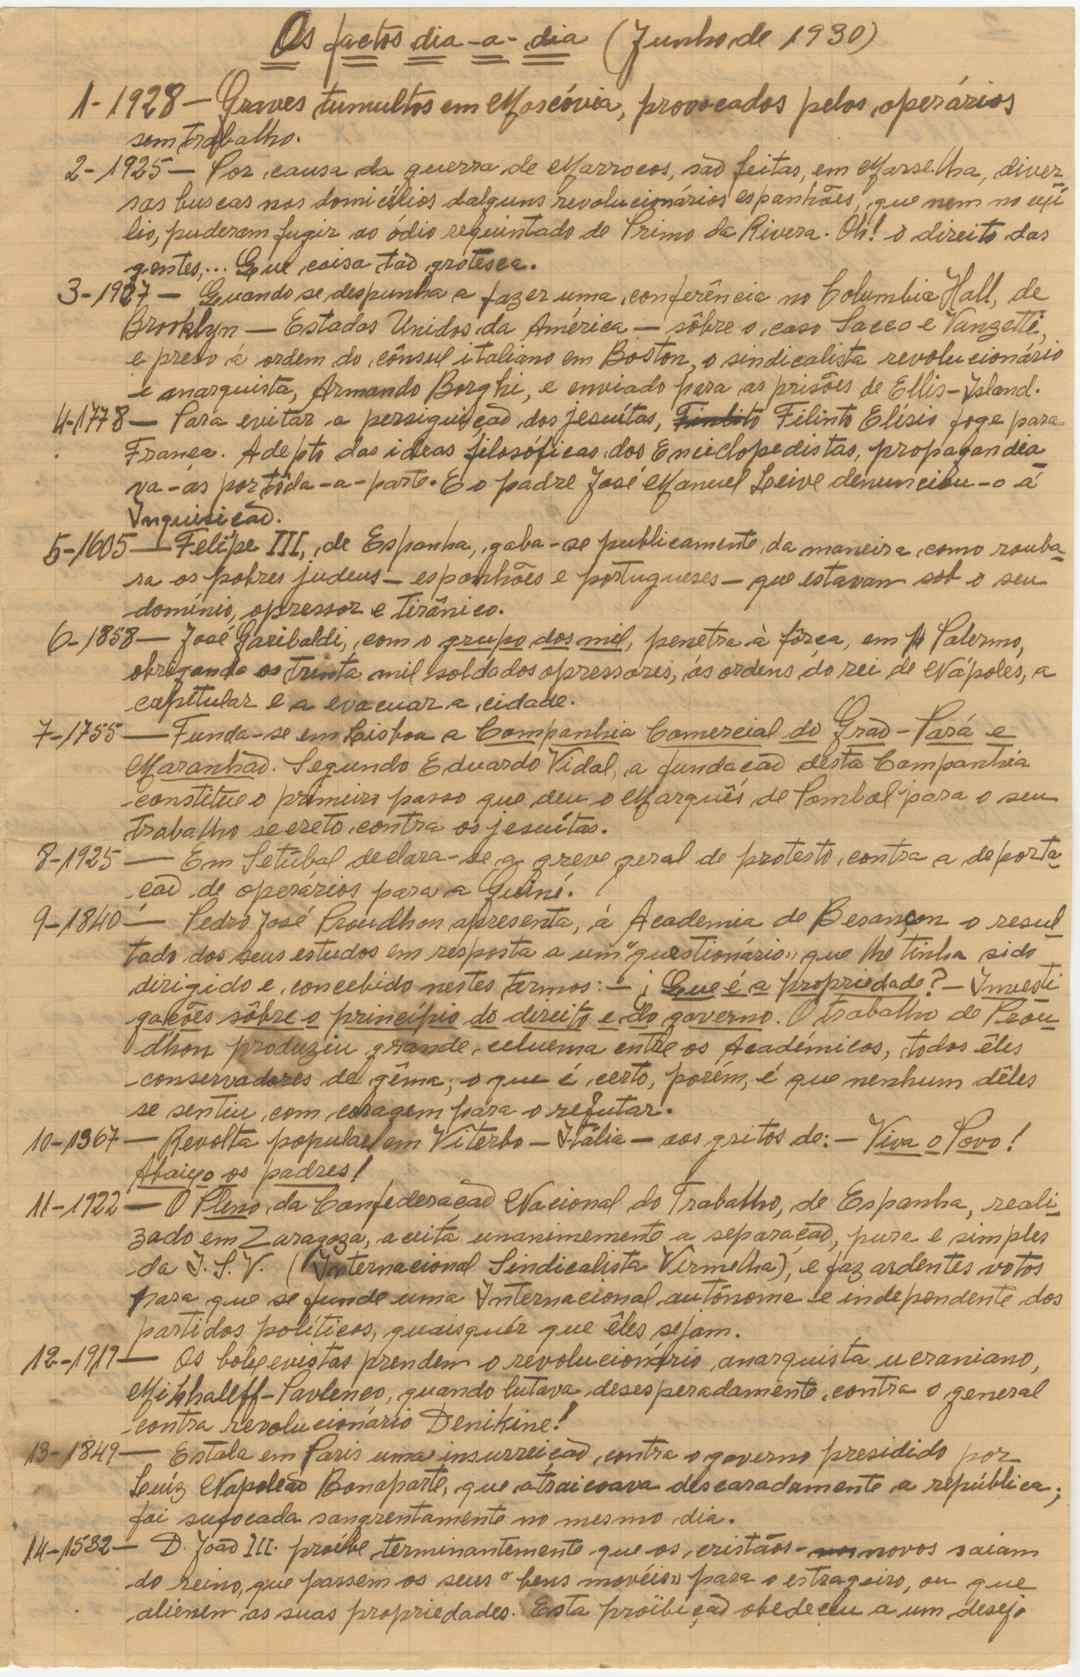 Os factos dia-a-dia (Junho de 1930)
1-1928 — Graves tumultos em Moscóvia, provocados pelos operários
sem trabalho.
2-1925 — Por causa da guerra de Marrocos, são feitas, em Marselha, diver
sas buscas nos domicílios dalguns revolucionários espanhões, que nem no exí
lio, puderam fugir ao ódio requintado de Primo da Rivera. Oh! o direito das
gentes,... Que coisa tão grotesca.
3-1927 — Quando se despunha a fazer uma conferência no Columbia Hall, de
Brooklyn — Estados Unidos da América — sôbre o caso Sacco e Vanzetti,
e prêso á ordem do cônsul italiano em Boston, o sindicalista revolucionário
e anarquista, Armando Borghi, e enviado para as prisões de Ellis-Island.
4-1778 — Para evitar a perseguição dos jesuítas, Filinto Elísio foge para
França. Adepto das ideas filosóficas dos Enciclopedistas, propagandia
va-as por tôda-a-parte. E o padre José Manuel Leive denunciou-o á
Inquisição.
5-1605 — Felipe III, de Espanha, gaba-se publicamente da maneira como rouba-
ra os pobres judeus — espanhões e portugueses — que estavam sob o seu
domínio, opressor e tirânico.
6-1858 — José Garibaldi, com o grupo dos mil, penetra à fôrça, em Palermo,
obrigando os trinta mil soldados opressores, ás ordens do rei de Nápoles, a
capitular e a evacuar a cidade.
7-1755 — Funda-se em Lisboa a Companhia Comercial do Grão-Pará e
Maranhão. Segundo Eduardo Vidal, a fundação desta Companhia
constitúe o primeiro passo que deu o Marquês de Pombal para o seu
trabalho secreto contra os jesuítas.
8-1925 — Em Setúbal declara-se a greve geral de protesto contra a deporta-
ção de operários para a Guiné.
9-1840 — Pedro José Proudhon apresenta, á Academia de Besançon o resul-
tado dos seus estudos em resposta a um "questionário" que lhe tinha sido
dirigido e concebido nestes termos: — ¿Que é a propriedade? — Investi
gações sôbre o princípio do direito e do governo. O trabalho de Prou-
dhon produziu grande celuema entre os Académicos, todos êles
conservadores de gêma; o que é certo, porém, é que nenhum dêles
se sentiu com coragem para o refutar.
10-1367 — Revolta popular em Viterbo — Itália — aos gritos de: — Viva o Povo!
Abaixo os padres!
11-1922 — O Pleno da Confederação Nacional do Trabalho, de Espanha, reali-
zado em Zaragoza, aceita unanimemente a separação, pura e simples
da I. S. V. (Internacional Sindicalista Vermelha), e faz ardentes votos
para que se funde uma Internacional autónoma e independente dos
partidos políticos, quaisquér que êles sejam.
12-1919 — Os bolxevistas prendem o revolucionário anarquista ucraniano,
Mikhaleff-Pavlenco, quando lutava desesperadamente contra o general
contra revolucionário Denikine!
13-1849 — Estala em Paris uma insurreição, contra o governo presidido por
Luíz Napoleão Bonaparte, que atraiçoava descaradamente a república;
foi sufocada sangrentamente no mesmo dia.
14-1532 — D. João III. proíbe terminantemente que os cristãos-novos saiam
do reino, que passem os seus "bens moveis" para o estrageiro, ou que
alienem as suas propriedades. Esta proïbição obedeceu a um desejo